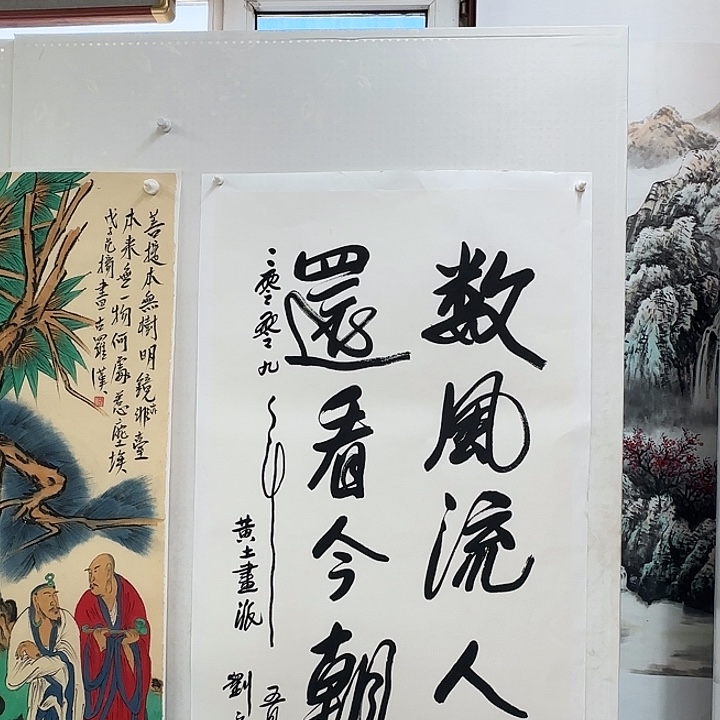 数風流人
還看今朝
二零零九年
五月
黄土畫派
劉
菩提本無樹明鏡非臺
本来無一物何處惹塵埃
戊子范擴畫古羅漢